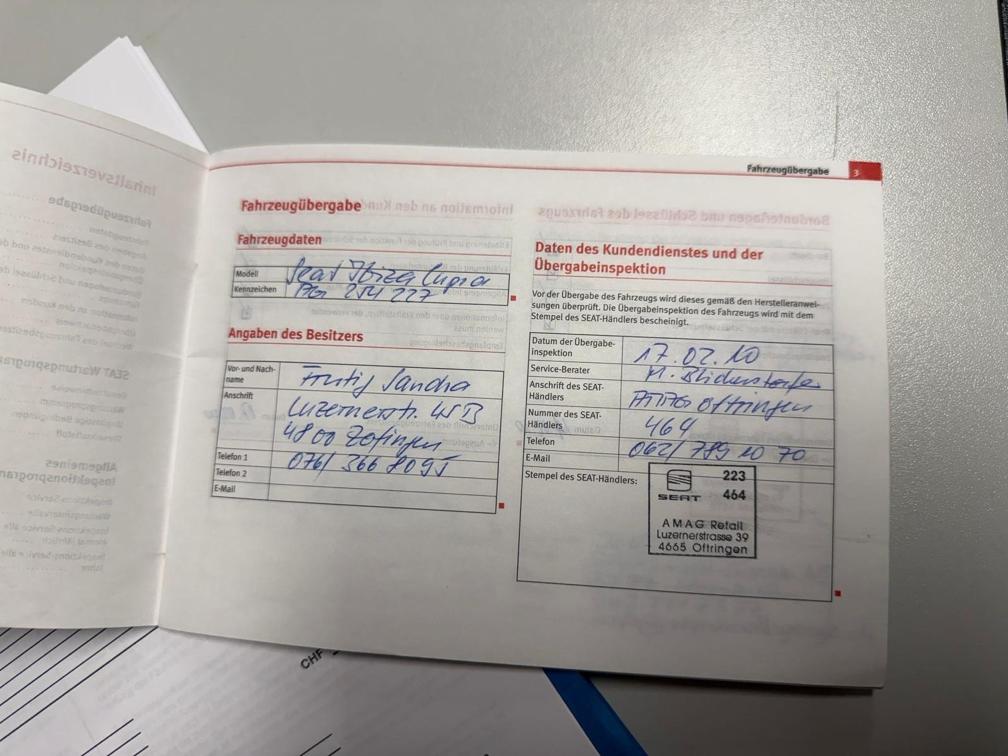 Fahrzeugübergabe 3
Fahrzeugübergabe
Fahrzeugdaten
Modell Seat Ibiza Cupra
Kennzeichen AG 254 227
Angaben des Besitzers
Vor- und Nach-
name Frutig Sandra
Anschrift Luzernerstr. 45B
4800 Zofingen
Telefon 1 076/ 366 80 95
Telefon 2
E-Mail
Daten des Kundendienstes und der
Übergabeinspektion
Vor der Übergabe des Fahrzeugs wird dieses gemäß den Herstelleranwei-
sungen überprüft. Die Übergabeinspektion des Fahrzeugs wird mit dem
Stempel des SEAT-Händlers bescheinigt.
Datum der Übergabe-
inspektion 17.02.10
Service-Berater M.
Anschrift des SEAT-
Händlers AMAG Oftringen
Nummer des SEAT-
Händlers 464
Telefon 062/ 789 10 70
E-Mail
Stempel des SEAT-Händlers:
SEAT
223
464
AMAG Retail
Luzernerstrasse 39
4665 Oftringen
Inhaltsverzeichnis
Fahrzeugübergabe
CHF